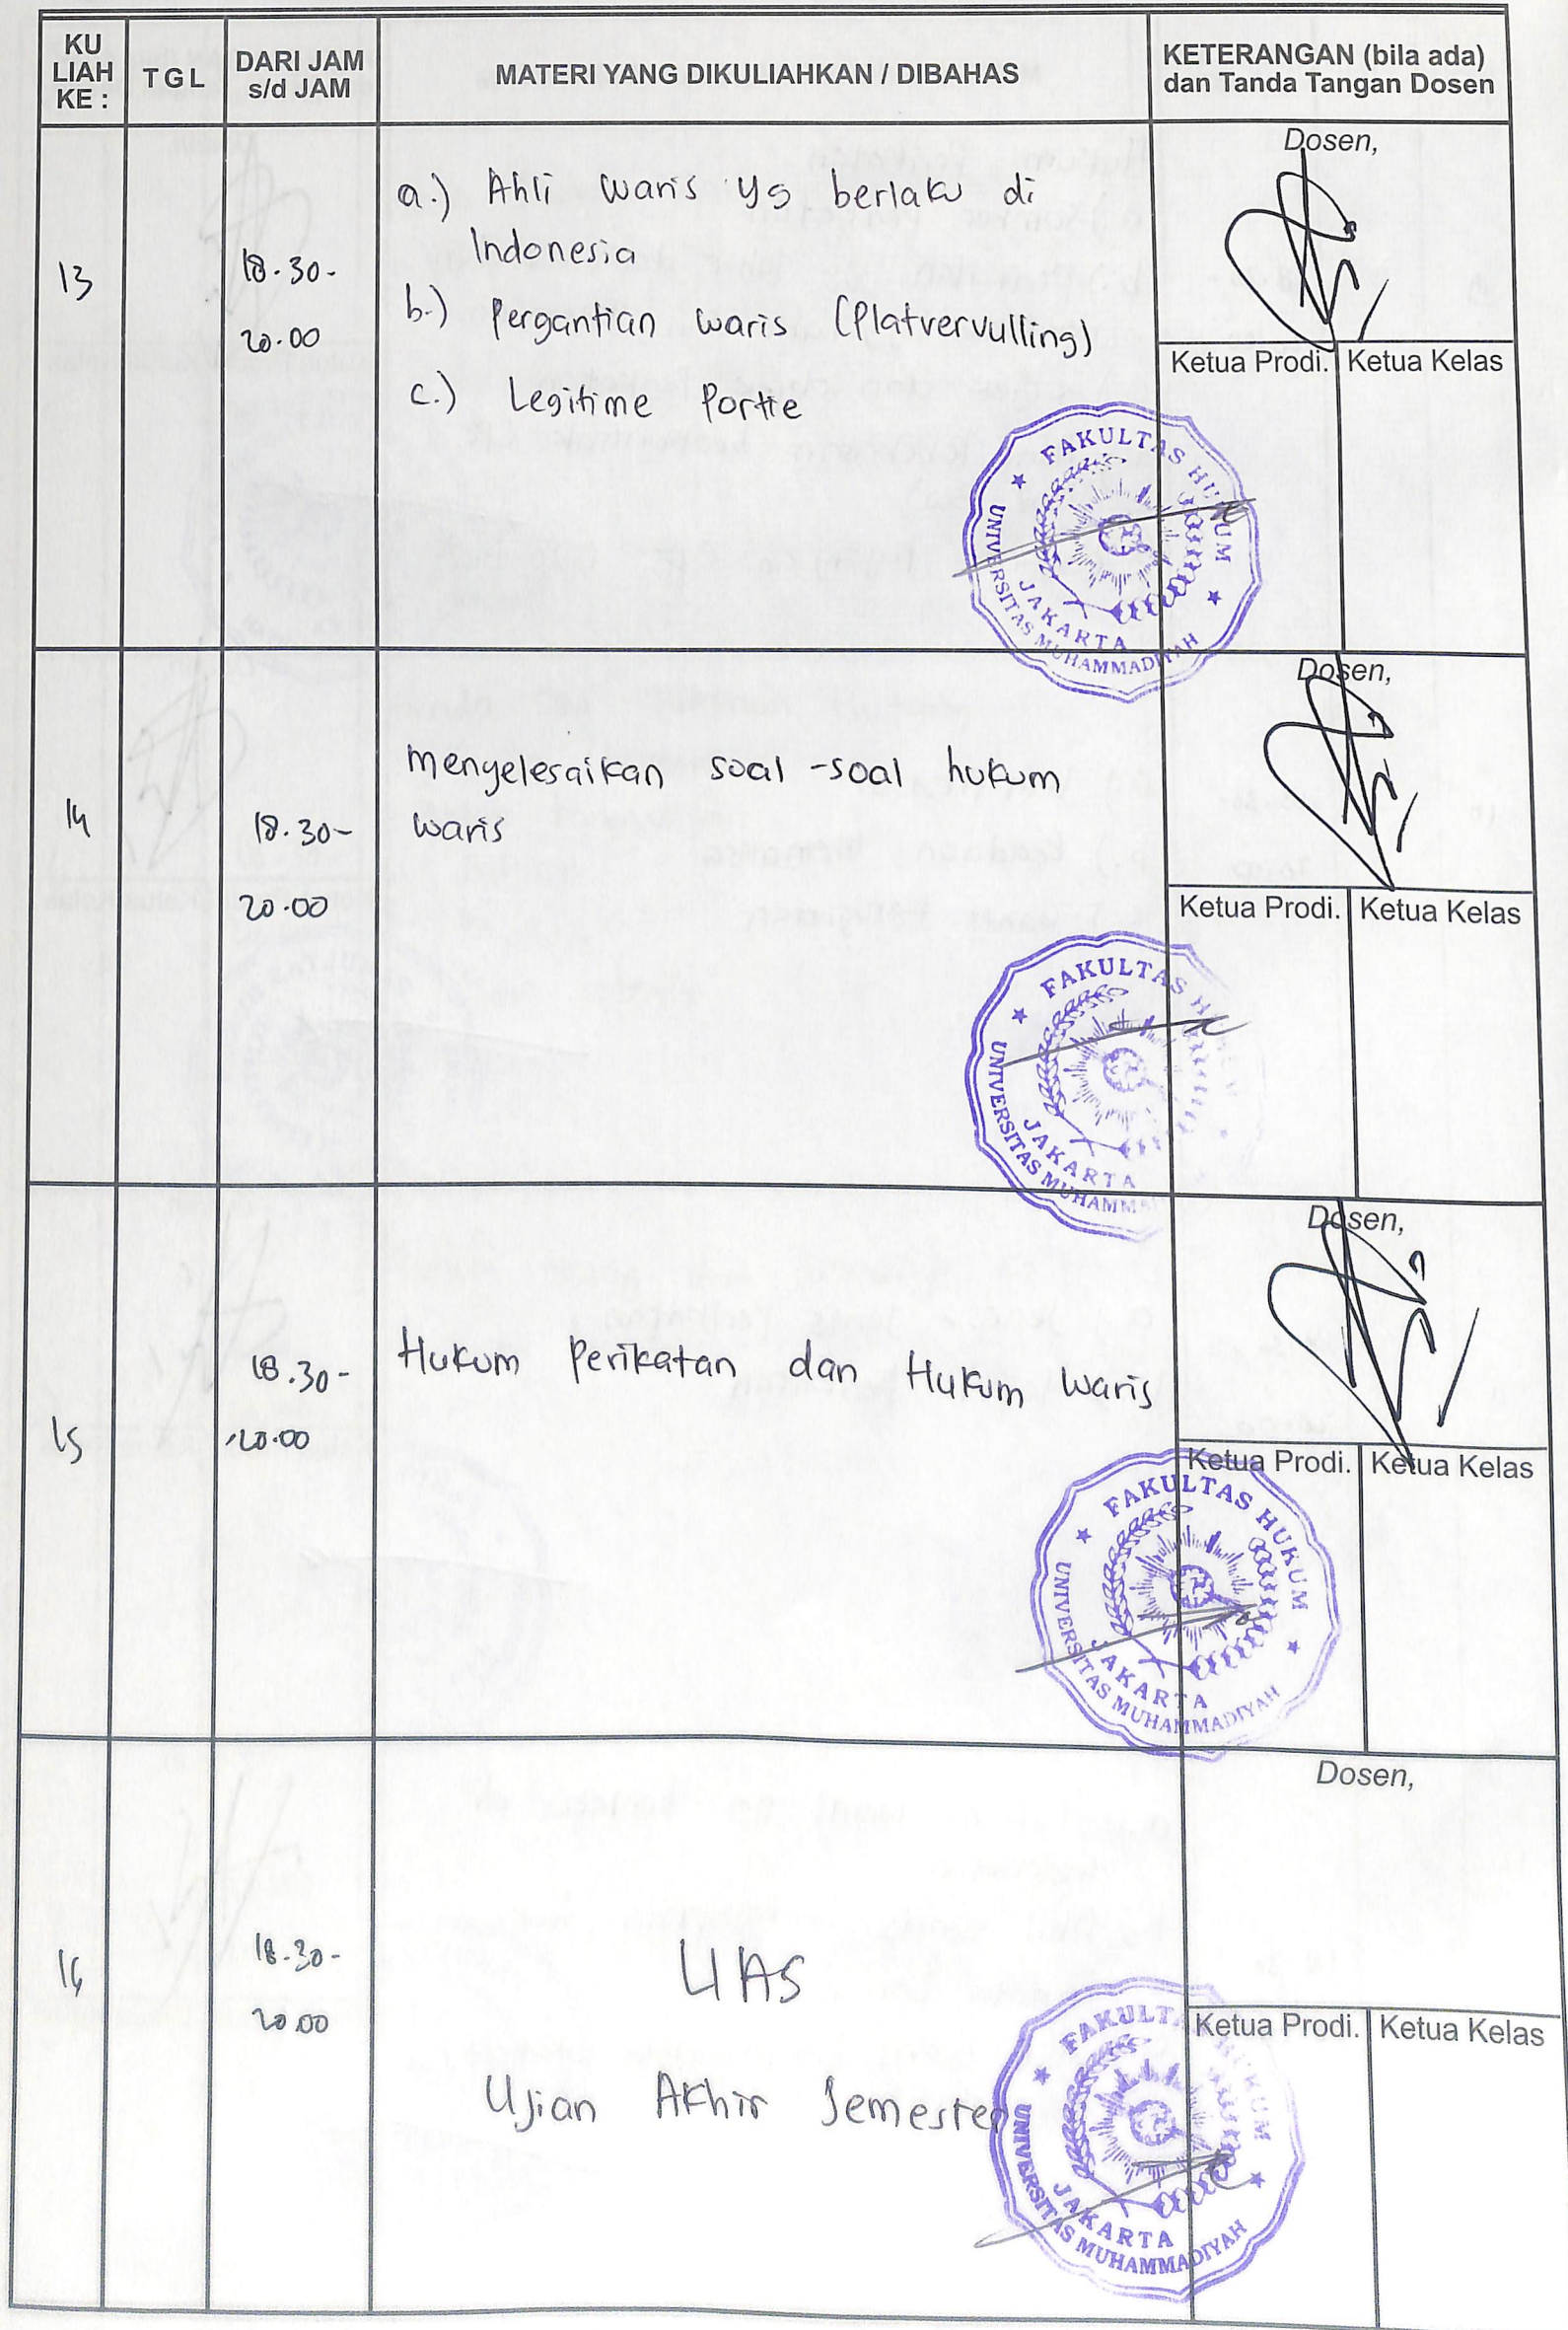 KU LIAH KE :
TGL
DARI JAM s/d JAM
MATERI YANG DIKULIAHKAN / DIBAHAS
KETERANGAN (bila ada) dan Tanda Tangan Dosen
13
18.30-
20.00
a.) Ahli waris yg berlaku di
Indonesia
b.) Pergantian waris (Platvervulling)
c.) Legitime Portie
Dosen,
Ketua Prodi.
Ketua Kelas
FAKULTAS HUKUM
UNIVERSITAS MUHAMMADIYAH
JAKARTA
14
18.30-
20.00
menyelesaikan soal-soal hukum
waris
Dosen,
Ketua Prodi.
Ketua Kelas
FAKULTAS H
UNIVERSITAS MUHAMM
JAKARTA
15
18.30-
20.00
Hukum Perikatan dan Hukum Waris
Dosen,
Ketua Prodi.
Ketua Kelas
FAKULTAS HUKUM
UNIVERSITAS MUHAMMADIYAH
JAKARTA
16
18.30-
20.00
UAS
Ujian Akhir Semester
Dosen,
Ketua Prodi.
Ketua Kelas
FAKULTAS HUKUM
UNIVERSITAS MUHAMMADIYAH
JAKARTA